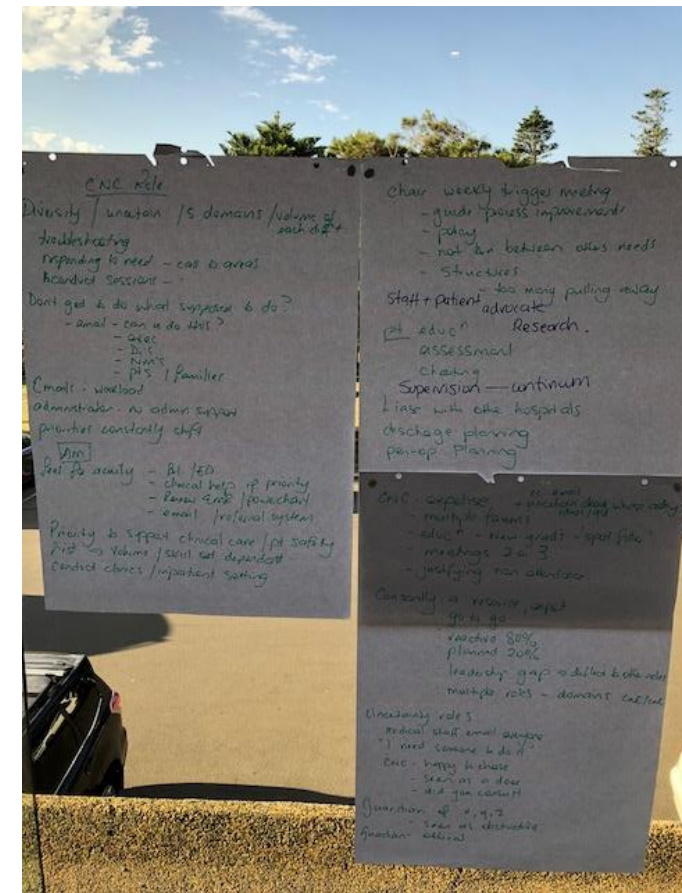 CNC Role
Diversity / uncertain / 5 domains / volume of
each diff
troubleshooting
responding to need - call to areas
conduct sessions -
Don't get to do what supposed to do?
- email - can u do this?
- exec
- NM's
- pts / families
Emails - workload
administration - no admin support
priorities constantly shift
AM
feel for acuity - /ED
- clinical help if priority
- Review /powerchart
- email /referral system
Priority to support clinical care / pt safety
volume / skill set dependent
Conduct clinics / inpatient setting
Chair weekly trigger meeting
- guide process improvements
- policy
- between others needs
- Structures
- too many pulling away
Staff + patient advocate
Research.
pt educⁿ
assessment
Supervision — continum
Liase with other hospitals
discharge planning
planning
CNC - expertise
- multiple
- educⁿ - new grads -
- meetings 2 or 3
- justifying non attendance
Constantly a resource, expert
go to
reactive 80%
planned 20%
leadership gap → other roles
multiple roles - domains
Uncertainty roles
medical staff email everyone
"I need someone to do it"
CNC - happy to chase
- seen as a doer
- did you consult
Guardian of x, y, z
- seen as obstructive
Guardian -